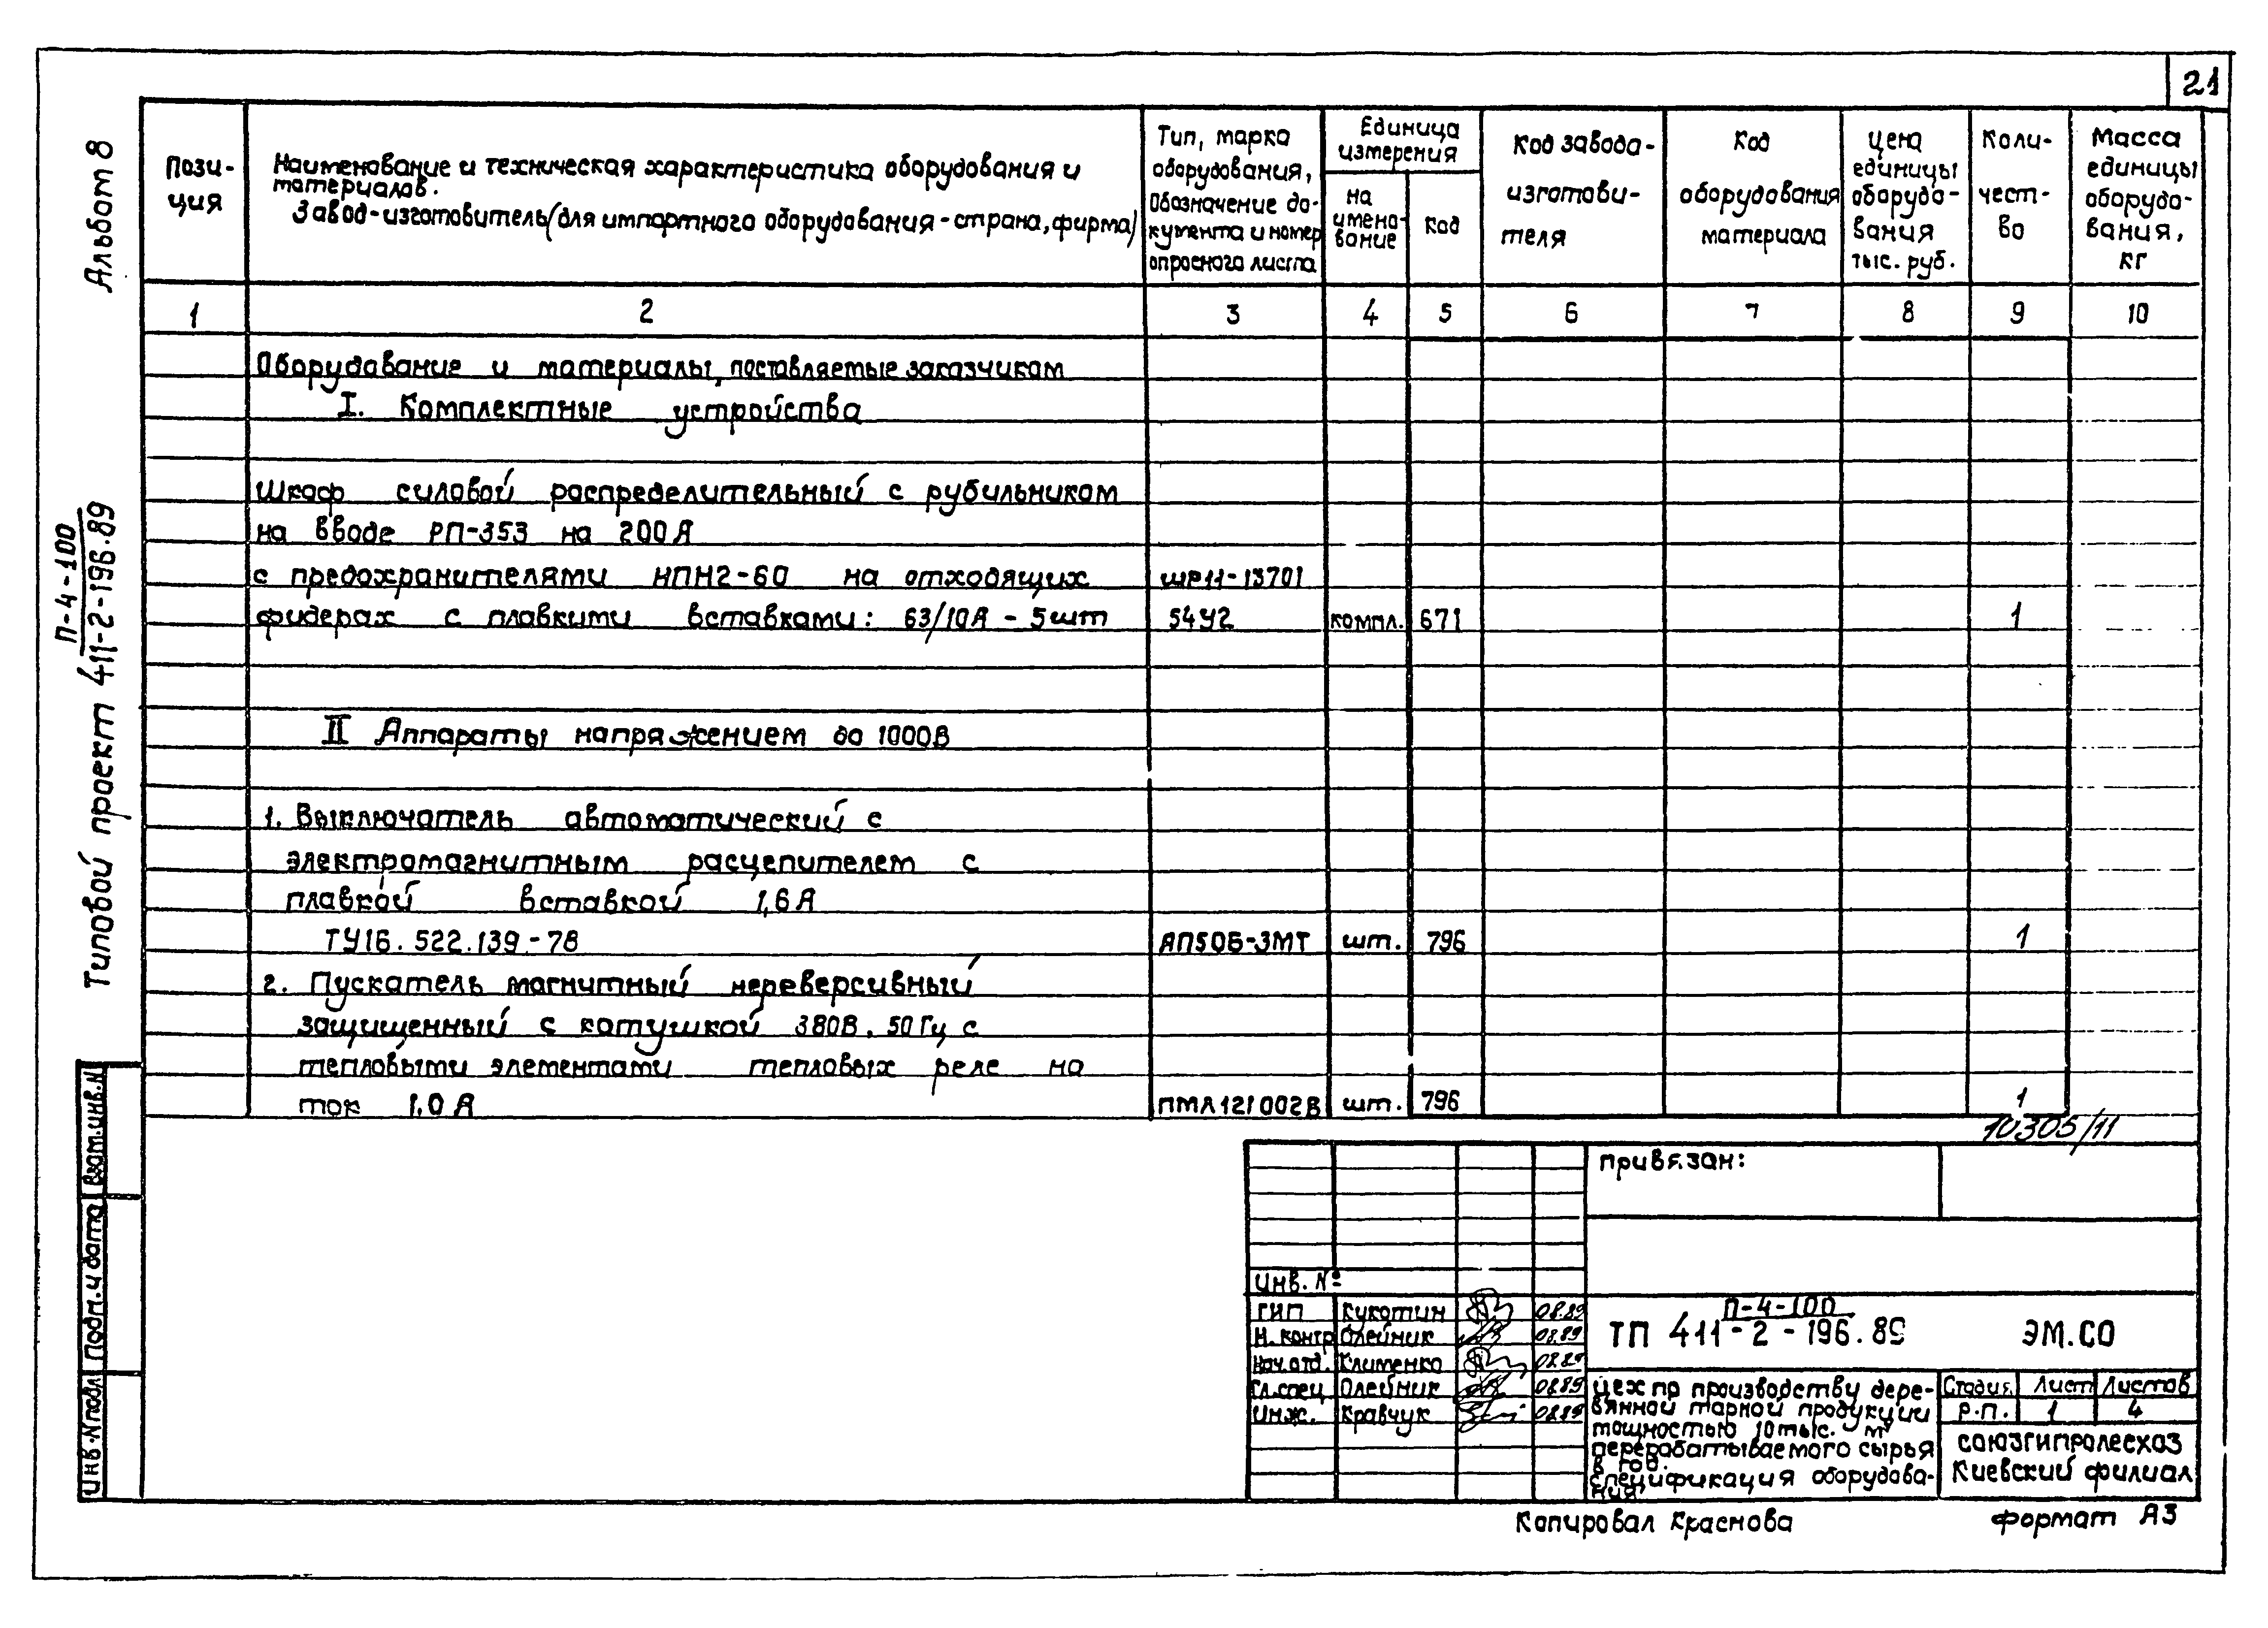 21
Альбом 8
П-4-100
Типовой проект 411-2-196.89
Пози-
ция
Наименование и техническая характеристика оборудования и
материалов.
Завод-изготовитель (для импортного оборудования - страна, фирма)
Тип, марка
оборудования,
Обозначение до-
кумента и номер
опросного листа
Единица
измерения
на
имено-
вание
код
Код завода-
изготови-
теля
Код
оборудования
материала
Цена
единицы
оборудо-
вания
тыс. руб.
Коли-
чест-
во
Масса
единицы
оборудо-
вания,
кг
1 2 3 4 5 6 7 8 9 10
Оборудование и материалы, поставляемые заказчиком
I. Комплектные устройства
Шкаф силовой распределительный с рубильником
на вводе РП-353 на 200А
с предохранителями НПН2-60 на отходящих ШР11-13701
фидерах с плавкими вставками: 63/10А - 5шт 54У2 компл. 671 1
II Аппараты напряжением до 1000В
1. Выключатель автоматический с
электромагнитным расцепителем с
плавкой вставкой 1,6А
ТУ16.522.139.-78 АП50Б-3МТ шт. 796 1
2. Пускатель магнитный нереверсивный
защищенный с катушкой 380В, 50Гц с
тепловыми элементами тепловых реле на
ток 1,0А ПМЛ121002В шт. 796 1
10305/11
Привязан:
Инв. №
ГИП Кукотин 08.89
Н. контр Олейник 08.89
Нач.отд. Клименко 08.89
Гл.спец Олейник 08.89
Инж. Кравчук 08.89
П-4-100
ТП 411-2-196.89 ЭМ.СО
Цех по производству дере-
вянной тарной продукции
мощностью 10тыс. м³
перерабатываемого сырья
в год.
Спецификация оборудова-
ния
Стадия Лист Листов
Р.П. 1 4
СОЮЗГИПРОЛЕСХОЗ
Киевский филиал
Инв.№подл Подп. и дата Взам.инв.№
Копировал Краснова Формат А3